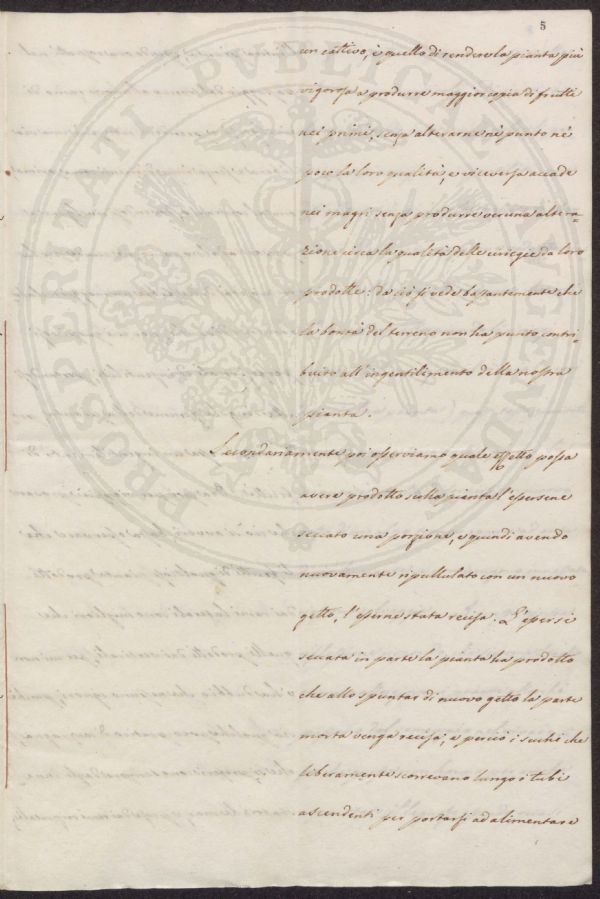 5
un cattivo, è quello di rendere la pianta più
vigorosa a produrre maggior copia di frutti
nei primi, senza alterarne nè punto nè
poco la loro qualità, e viceversa accade
nei magri senza produrre veruna altera-
zione circa la qualità delle ciriegie da loro
prodotte: da ciò si vede bastantemente che
la bontà del terreno non ha punto contri-
buito all'ingentilimento della nostra
pianta.
Secondariamente poi osserviamo quale effetto possa
avere prodotto sulla pianta l'essersene
seccato una porzione, e quindi avendo
nuovamente ripullulato con un nuovo
getto, l'esserne stata recisa. L'essersi
seccata in parte la pianta ha prodotto
che allo spuntar di nuovo getto la parte
morta venga recisa; e perciò i succhi che
liberamente scorrevano lungo i tubi
ascendenti per portarsi ad alimentare
PROSPERITATI PUBLICAE AUGENDAE